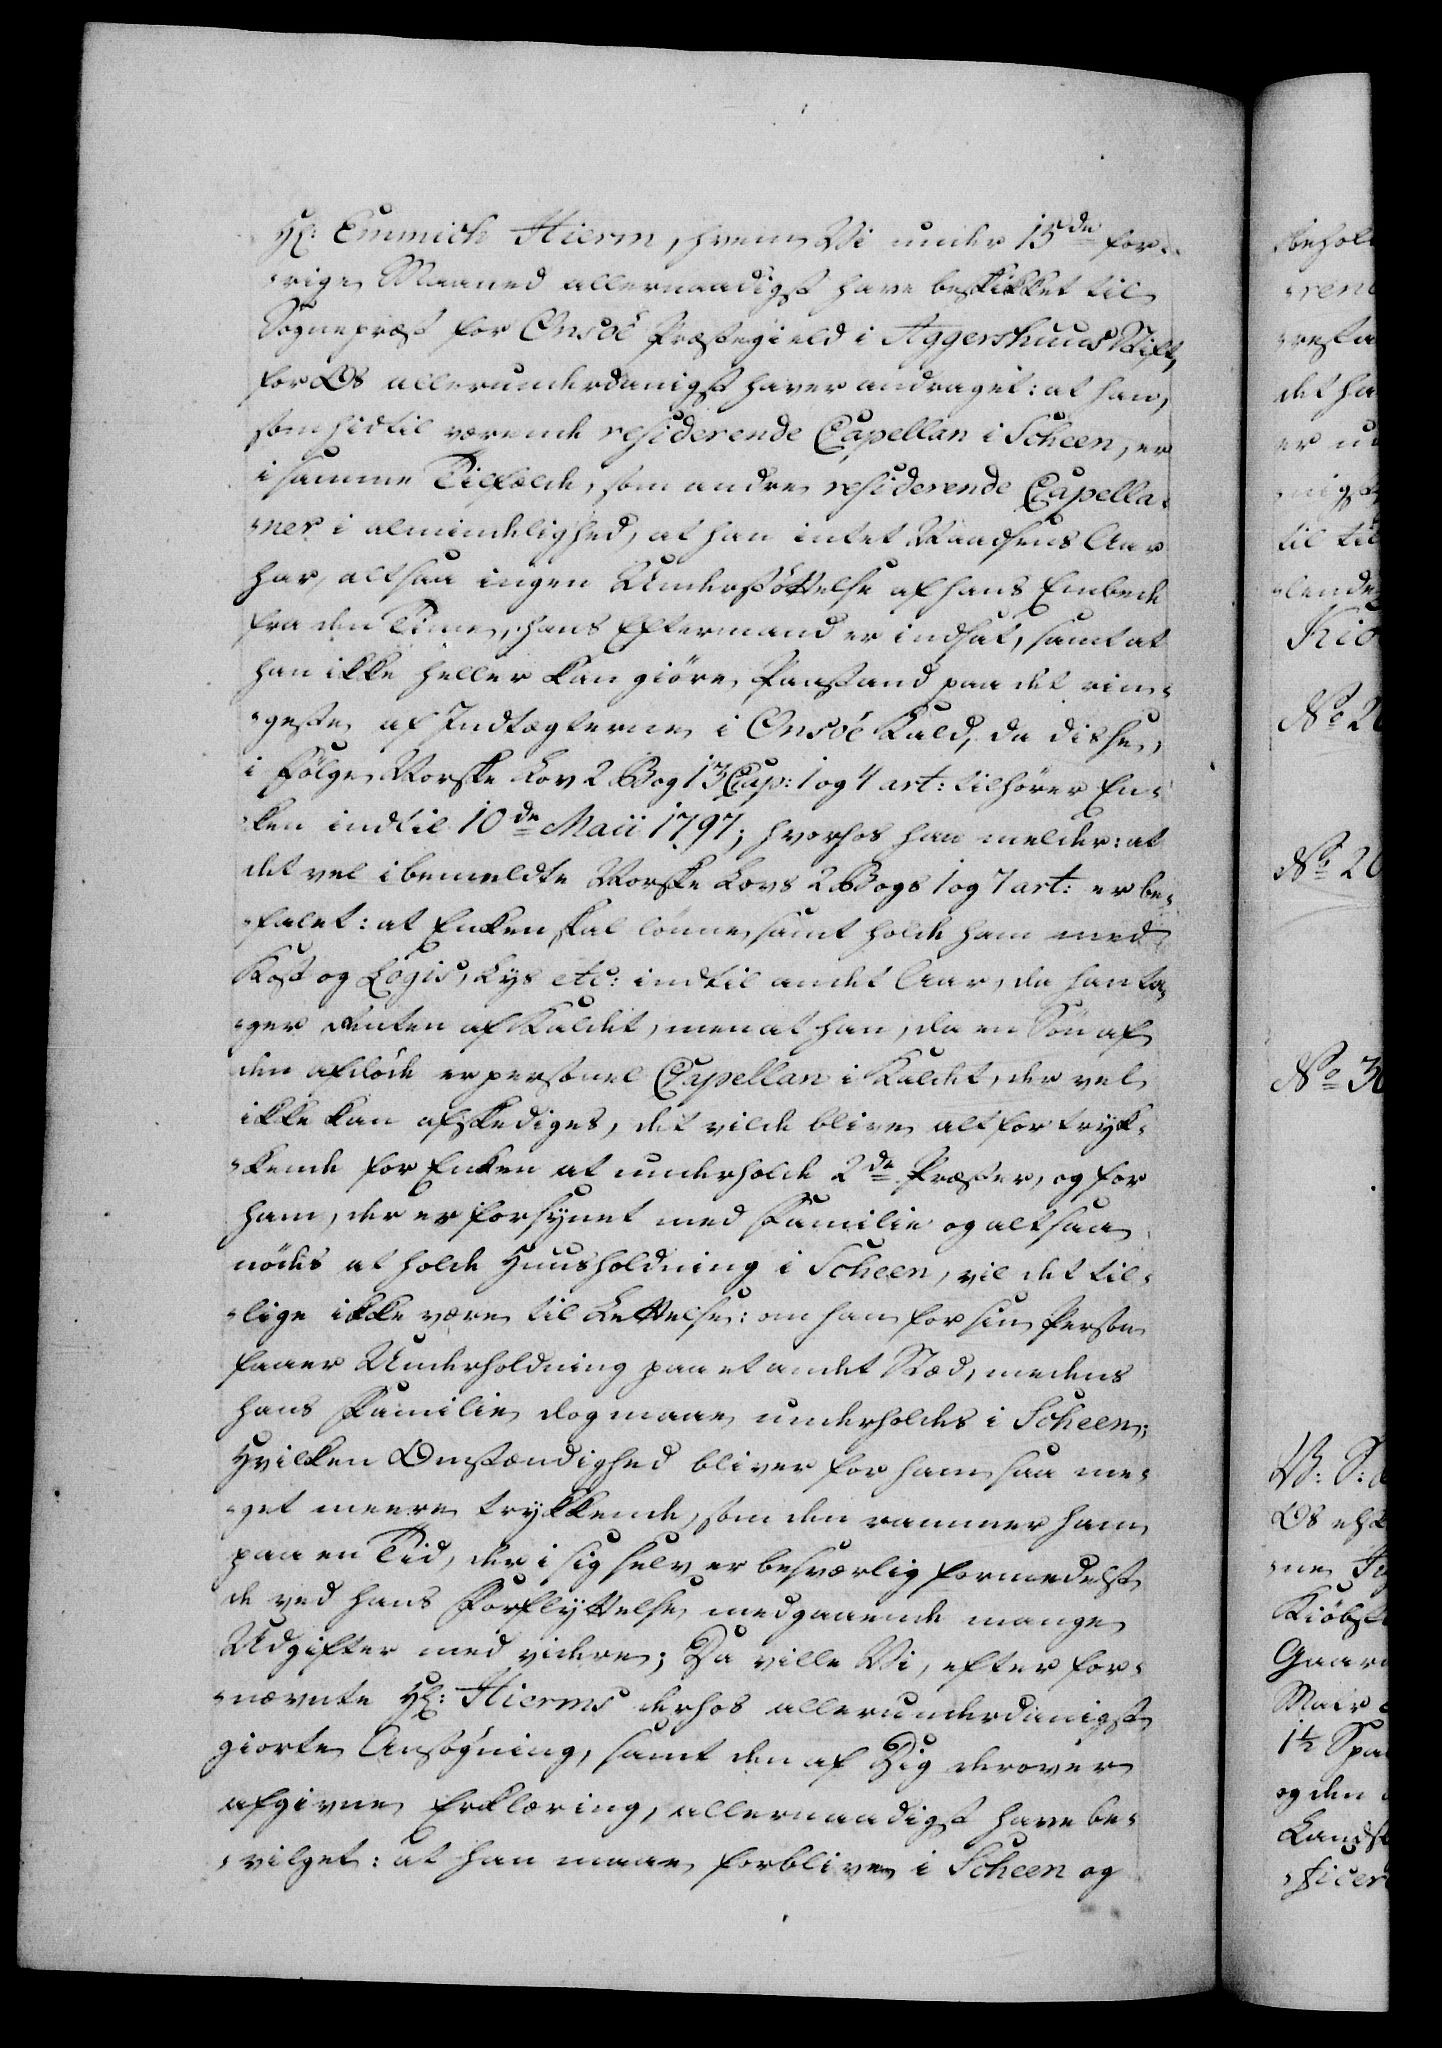 Hr: Emmich Hierm, hvem Vi under 15de for-
-rige Maaned allernaadigst have beskikket til
Sognepræst for Onsöe Præstegield i Aggershuus Stift,
for Os allerunderdanigst haver andraget: at han,
som hidtil værende residerende Capellan i Scheen, er
i samme Tilfælde, som andre residerende Capella-
-ner i almindelighed, at han intet Naadsens Aar
har, altsaa ingen Understöttelse af hans Embede
fra den Time, hans Eftermand er indsat, samt at
han ikke heller kan giöre Paastand paa det rin-
-geste af Indtægterne i Onsöe Kald, da disse,
i Fölge Norske Lov 2 Bog 13 Cap: 1 og 4 art: tilhörer En-
-ken indtil 10de Maii 1797; hvorhos han melder: at
det vel i bemeldte Norske Lovs 2 Bogs 1 og 7 art: er be-
-falet: at Enken skal lönne, samt holde ham med
Kost og Logis, Lys etc: indtil andet Aar, da han ta-
-ger Renten af Kaldet, men at han, da en Sön af
den afdöde er personel Capellan i Kaldet, der vel
ikke kan afskediges, det vilde blive alt for tryk-
-kende for Enken at underholde 2de Præster, og for
ham, der er forsynet med Familie og altsaa
nödes at holde Huusholdning i Scheen, vil det til-
-lige ikke være til Lettelse: om han for sin Person
faaer Underholdning paa et andet Stæd, medens
hans Familie dog maae underholdes i Scheen;
Hvilken Omstændighed bliver for ham saa me-
-get meere trykkende, som den rammer ham
paa en Tid, der i sig selv er besværlig formedelst
de ved hans Forflyttelse medgaaende mange
Udgifter med videre; Da ville Vi, efter for-
-nævnte Hr: Hierms derhos allerunderdanigst
giorte Ansögning, samt den af Dig derover
afgivne Erklæring, allernaadigst have be-
-vilget: at han maae forblive i Scheen og